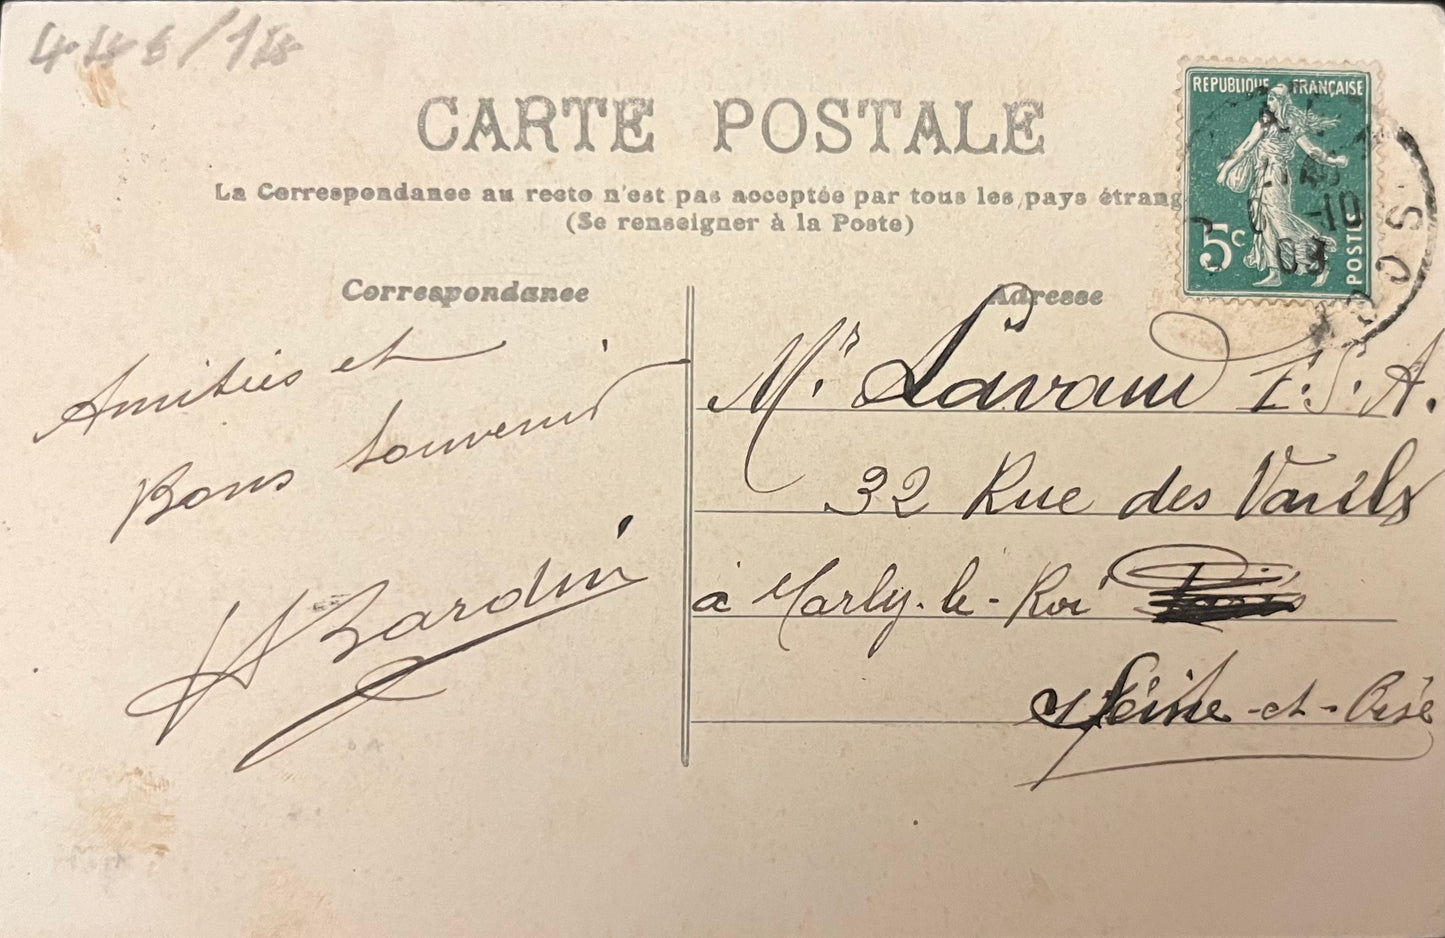 CARTE POSTALE
La Correspondance au recto n'est pas acceptée par tous les pays étrang
(Se renseigner à la Poste)
REPUBLIQUE FRANÇAISE
5c
POSTE
-10
09
Correspondance
Amitiés et
Bons Souvenir
Bardin
Adresse
Mr. Lavaud
32 Rue des
à Marly-le-Roi Paris
Seine-et-Oise